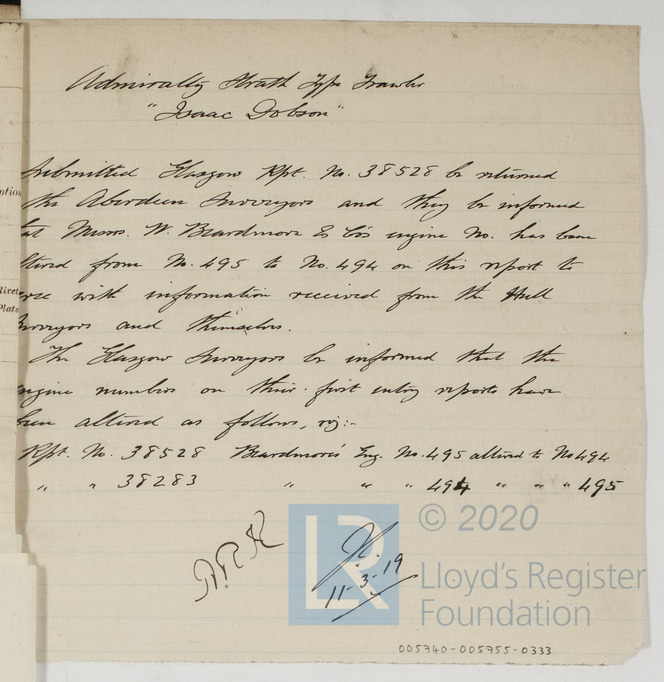 Admiralty Strath Type Trawler
"Isaac Dobson"
Submitted Glasgow Rpt. No. 38528 be returned
the Aberdeen Surveyors and they be informed
Messrs. W. Beardmore & Co's engine No. has been
from No. 495 to No. 494 on this report to
with information received from the Hull
Surveyors and themselves.
The Glasgow Surveyors be informed that the
engine numbers on their first entry reports have
been altered as follows, viz:-
Rpt. No. 38528 Beardmore's Eng. No. 495 altered to No 494
" " 38283 " " " 494 " " " 495
11-3-19
ption
Rivet
Plate
LR
© 2020
Lloyd's Register
Foundation
005740-005755-0333